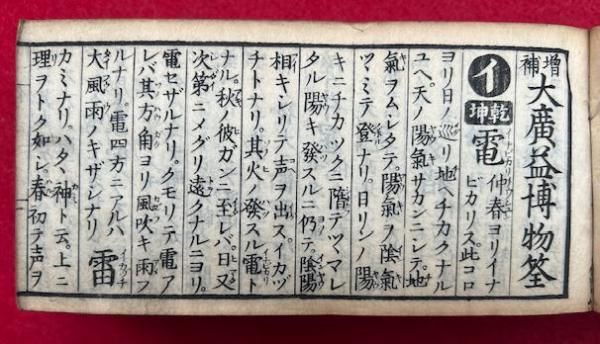 増補 大廣益博物筌
イ 乾坤 電 仲春ヨリイナ
ビカリス。此コロ
ヨリ日ノ巡リ地ヘチカクナル
ユヘ。天ノ陽氣サカンニシテ。地
氣ヲムシタテ。陽氣ヲ陰氣
ツヽミテ登ナリ。日リンノ陽
キニチカツクニ隨テツヽマレ
タル陽キ發スルニ仍テ。陰陽
相キシリテ声ヲ出ス。イカヅ
チトナリ。其火ノ發スル電ト
ナル。秋ノ彼ガンニ至レバ。日又
次第ニメグリ遠クナルニヨリ。
電セザルナリ。クモリテ電ア
レバ其方角ヨリ風吹キ雨フ
ルナリ。電四方ニアルハ
大風雨ノキザシナリ
雷 イカヅチ
カミナリ。ハタヽ神ト云。上ニ
理ヲトク如シ。春初テ声ヲ